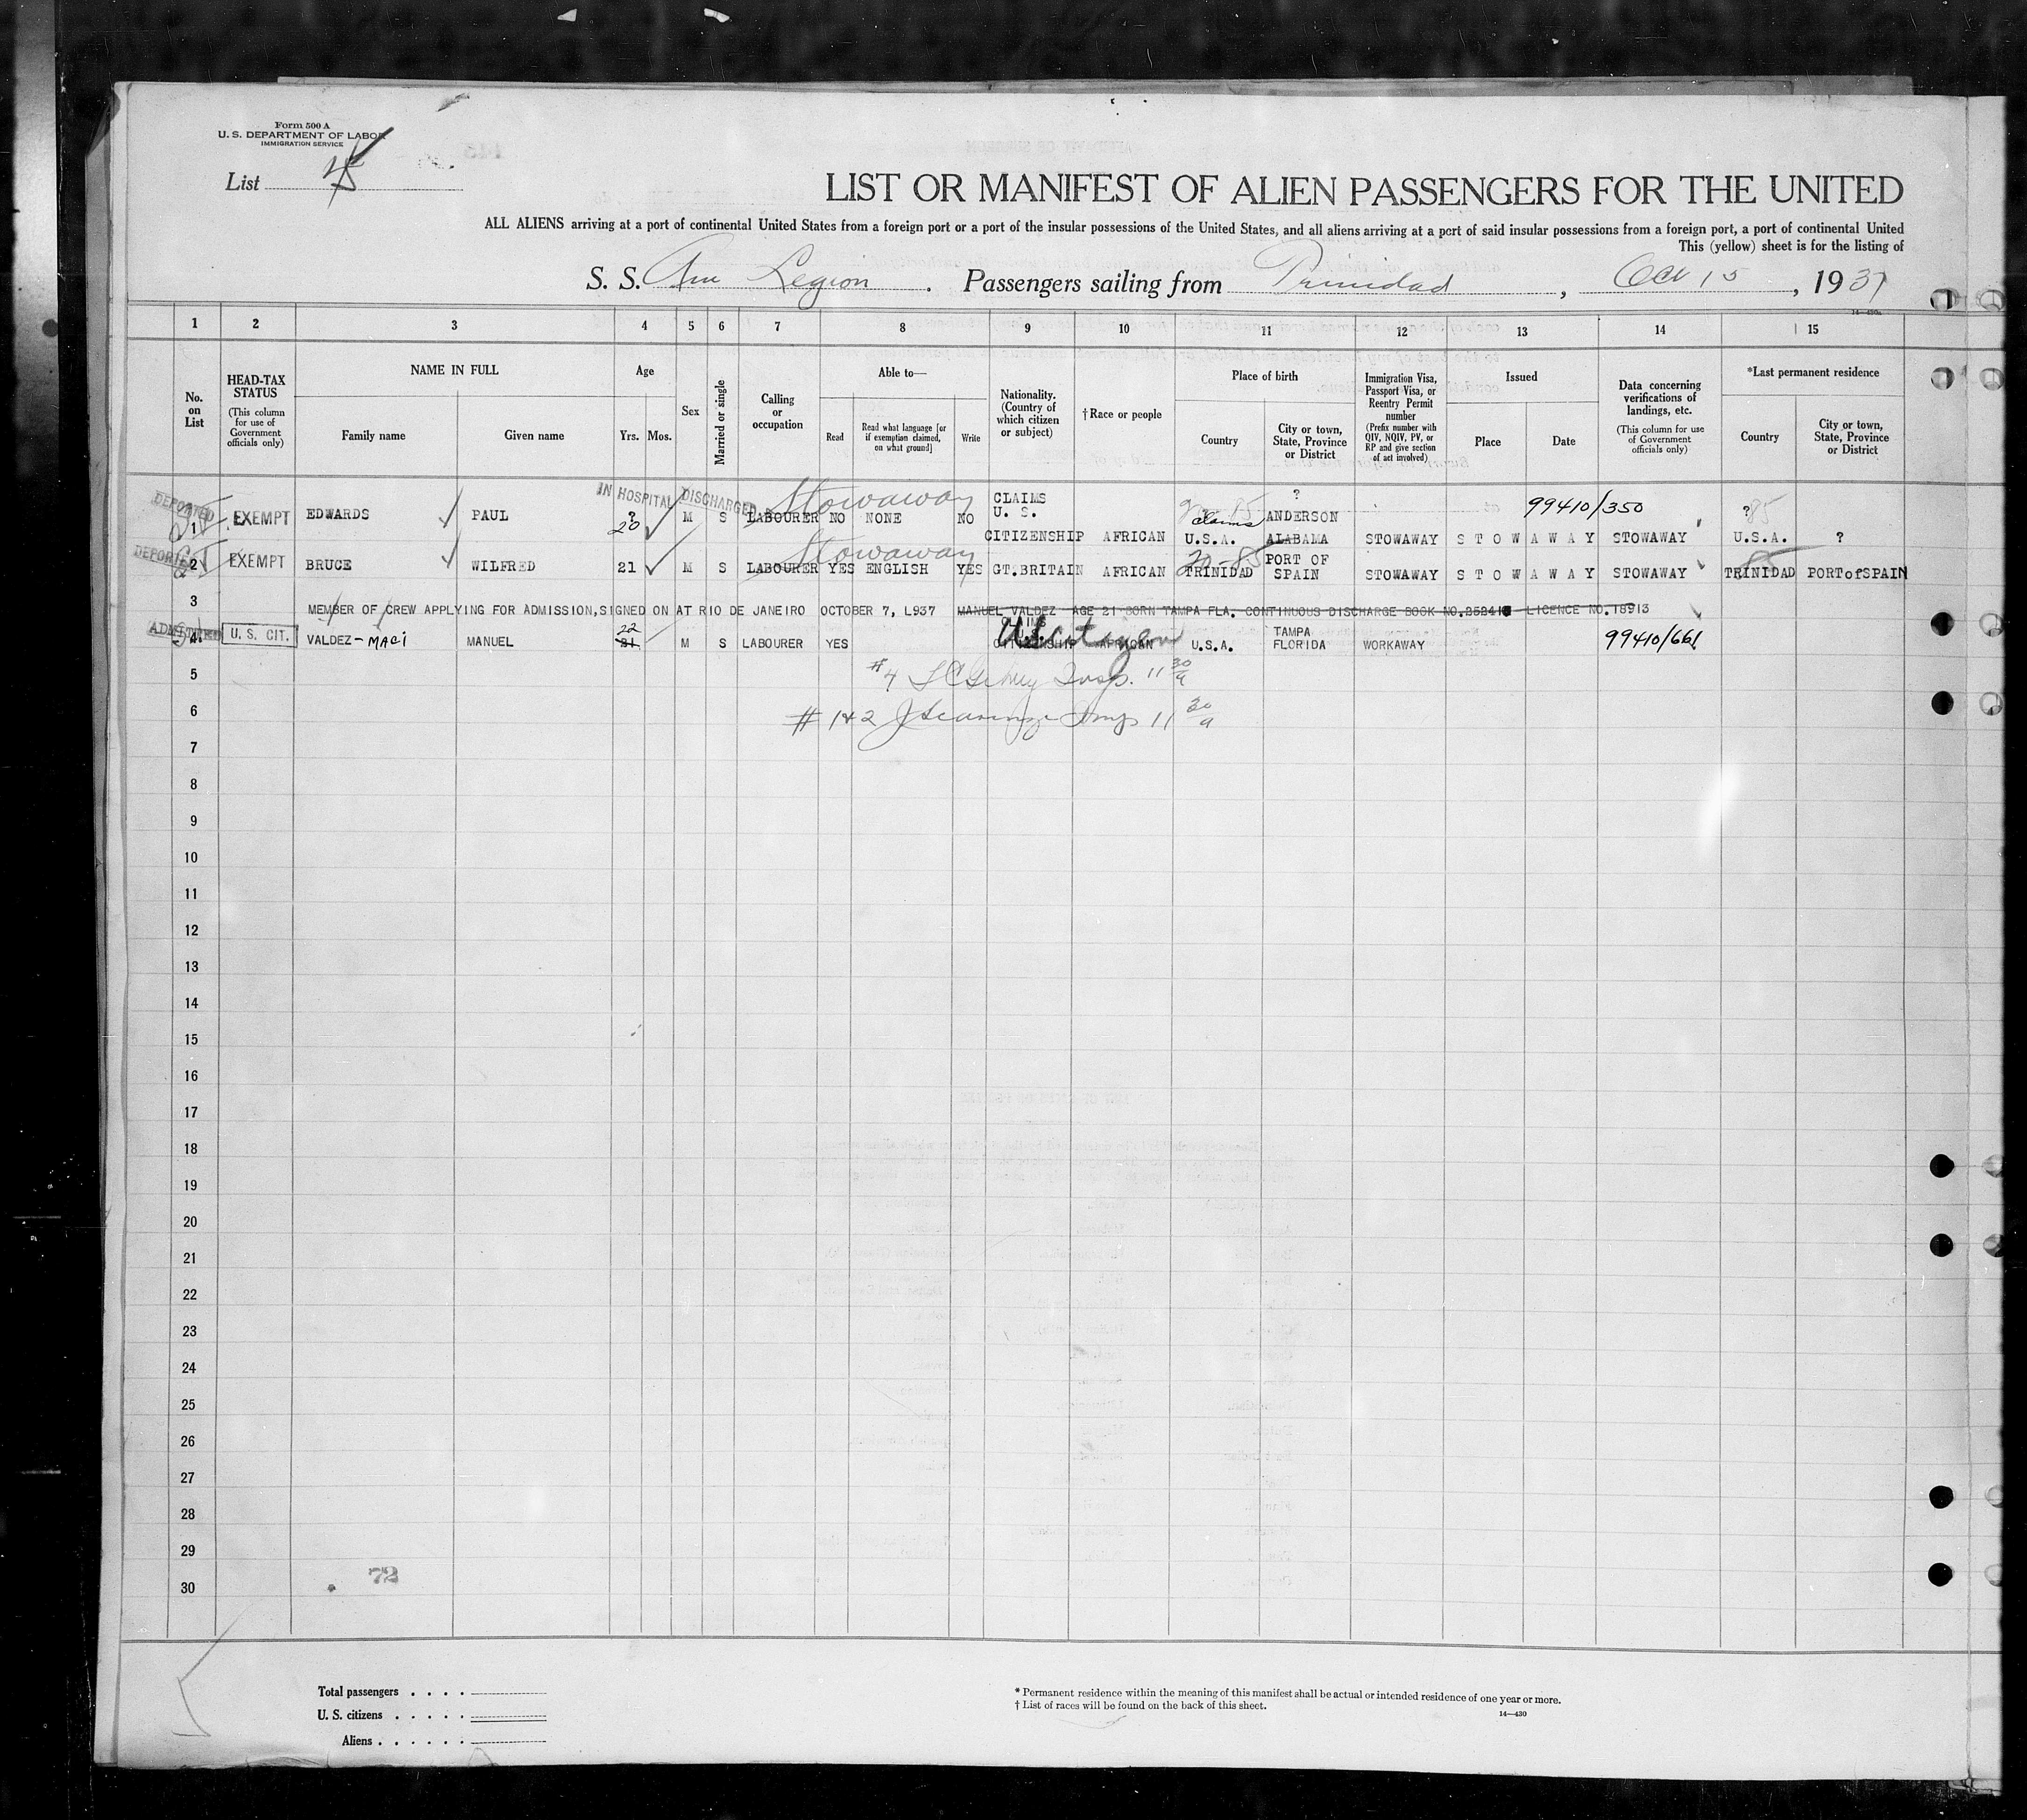 Form 500 A
U. S. DEPARTMENT OF LABOR
IMMIGRATION SERVICE
List
LIST OR MANIFEST OF ALIEN PASSENGERS FOR THE UNITED
ALL ALIENS arriving at a port of continental United States from a foreign port or a port of the insular possessions of the United States, and all aliens arriving at a port of said insular possessions from a foreign port, a port of continental United
This (yellow) sheet is for the listing of
S. S. Am Legion . Passengers sailing from Trinidad , Oct 15 , 1937
14—430a
1 2 3 4 5 6 7 8 9 10 11 12 13 14 15
No. on List
HEAD-TAX STATUS (This column for use of Government officials only)
NAME IN FULL
Family name Given name
Age
Yrs. Mos.
Sex
Married or single
Calling or occupation
Able to—
Read Read what language [or if exemption claimed, on what ground] Write
Nationality. (Country of which citizen or subject)
†Race or people
Place of birth
Country City or town, State, Province or District
Immigration Visa, Passport Visa, or Reentry Permit number (Prefix number with QIV, NQIV, PV, or RP and give section of act involved)
Issued
Place Date
Data concerning verifications of landings, etc. (This column for use of Government officials only)
*Last permanent residence
Country City or town, State, Province or District
DEPORTED IN HOSPITAL DISCHARGED Stowaway
1 EXEMPT EDWARDS PAUL ? 20 M S LABOURER NO NONE NO CLAIMS U. S. CITIZENSHIP AFRICAN claims U.S.A. ? ANDERSON ALABAMA STOWAWAY STOWAWAY 99410/350 STOWAWAY ? 85 U.S.A. ?
DEPORTED Stowaway
2 EXEMPT BRUCE WILFRED 21 M S LABOURER YES ENGLISH YES GT.BRITAIN AFRICAN TRINIDAD PORT OF SPAIN STOWAWAY STOWAWAY STOWAWAY 85 TRINIDAD PORTofSPAIN
3 MEMBER OF CREW APPLYING FOR ADMISSION,SIGNED ON AT RIO DE JANEIRO OCTOBER 7, L937 MANUEL VALDEZ AGE 21 BORN TAMPA FLA. CONTINUOUS DISCHARGE BOOK NO. LICENCE NO.18913
ADMITTED
4 U. S. CIT. VALDEZ-MACI MANUEL 22 21 M S LABOURER YES CLAIMS U.S. CITIZENSHIP US citizen AFRICAN U.S.A. TAMPA FLORIDA WORKAWAY 99410/661
5 #4 Insp. 11 30/a
6 # 1+2 Insp 11 30/a
7
8
9
10
11
12
13
14
15
16
17
18
19
20
21
22
23
24
25
26
27
28
29
30
72
Total passengers . . . .
U. S. citizens . . . . .
Aliens . . . . . .
* Permanent residence within the meaning of this manifest shall be actual or intended residence of one year or more.
† List of races will be found on the back of this sheet.
14—430